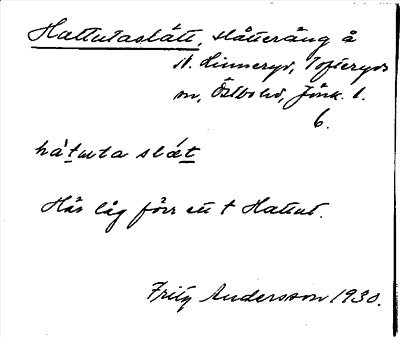 Hattutaslätt, slåtteräng å
N. Linneryd, Tofteryds
sn, Östbo hd, Jönk. l.
6.
hàtuta slæt
Här låg förr ett † Hattut.
Fritz Andersson 1930.